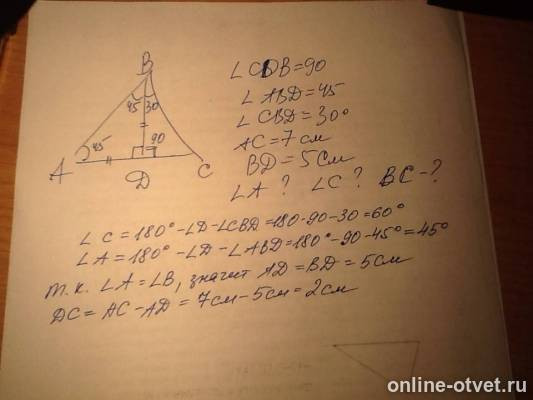 B
45 30
45°
90
A
D
C
∠CDB=90
∠ABD=45
∠CBD=30°
AC=7см
BD=5см
∠A? ∠C? BC-?
∠C=180°-∠D-∠CBD=180-90-30=60°
∠A=180°-∠D-∠ABD=180°-90-45°=45°
т.к. ∠A=∠B, значит AD=BD=5см
DC=AC-AD=7см-5см=2см
online-otvet.ru